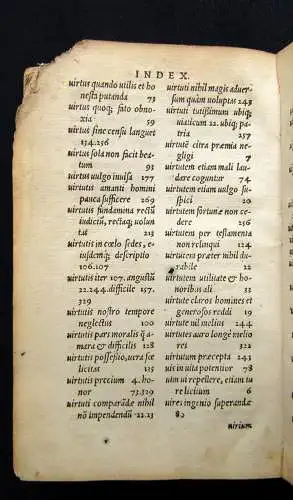 INDEX.
uirtus quando utilis et ho
nesta putanda 73
uirtus quoq; fato obno
xia 59
uirtus sine censu languet
134.256
uirtus sola non facit bea
tum 93
uirtus uulgo inuisa 177
uirtutis amanti homini
pauca sufficere 269
uirtutis fundamina rectū
iudiciū, rectaq; uolun
tas 213
uirtutis in cœlo sedes, e-
iusdemq́; descriptio
106.107
uirtutis iter 107. angustū
22.24.4. difficile 157.
329
uirtutis nostro tempore
neglectus 100
uirtutis pars moralis q̄ a-
mara & difficilis 128
uirtutis possessio, uera fœ
licitas 135
uirtutis præcium 4. ho-
nor 73.329
uirtuti comparādæ nihil
nō impendendū 22.23
uirtuti nihil magis aduer
sum quàm uoluptas 243
uirtuti tutissimum ubiq;
uiaticum 22. ubiq; pa
tria 257
uirtutē citra præmia ne-
gligi 7
uirtutem etiam mali lau
dare coguntur 74
uirtutem etiam uulgo su-
spici 20
uirtutem fortunæ non ce-
dere 256
uirtutem per testamenta
non relinqui 124
uirtutem præter nihil du
rabile 22
uirtutem utilitate & ho
noribus ali 33
uirtute claros homines et
generosos reddi 19
uirtute nil melius 244
uirtutes auro longè melio
res 32
uirtutum præcepta 243
uis in uita potentior 78
uim ui repellere, etiam tu
re licitum 6
uires ingenio superandæ
80
uirium